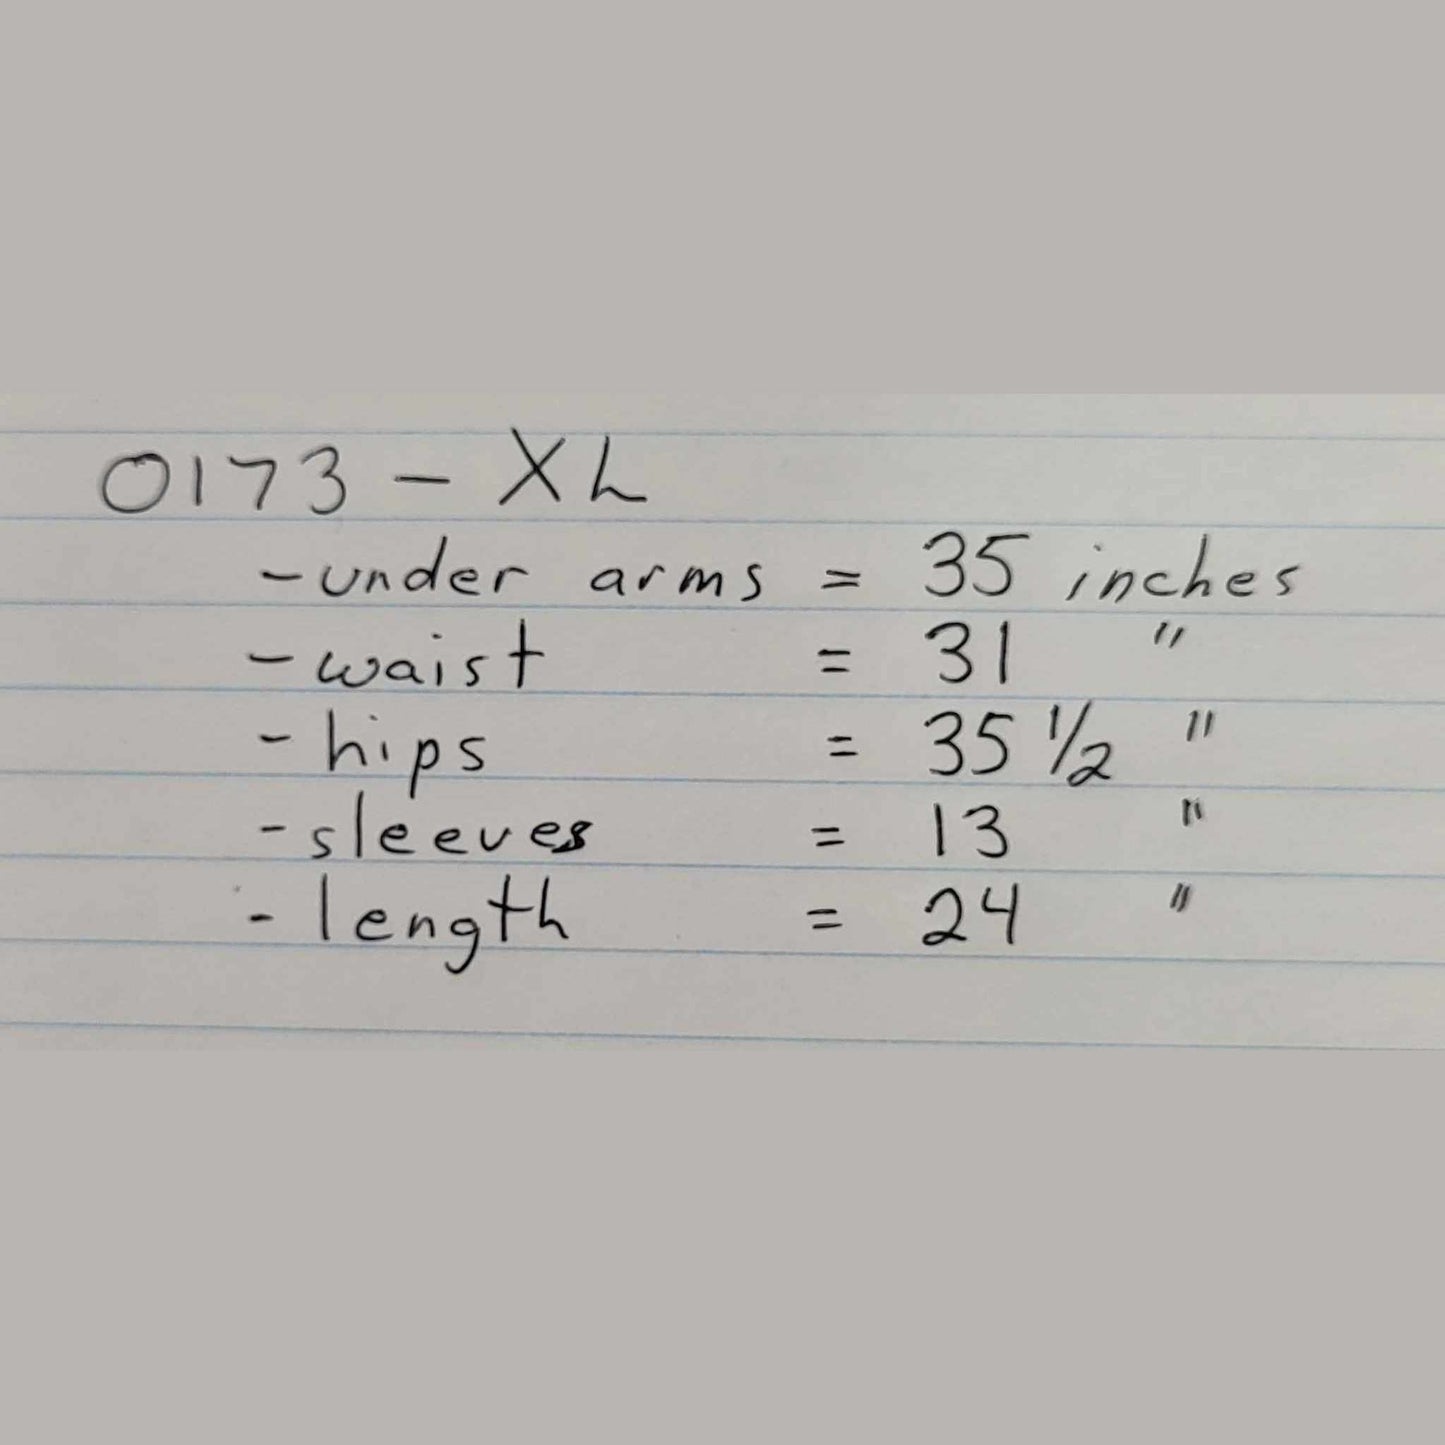 0173 - XL
- under arms = 35 inches
- waist = 31 "
- hips = 35 1/2 "
- sleeves = 13 "
- length = 24 "